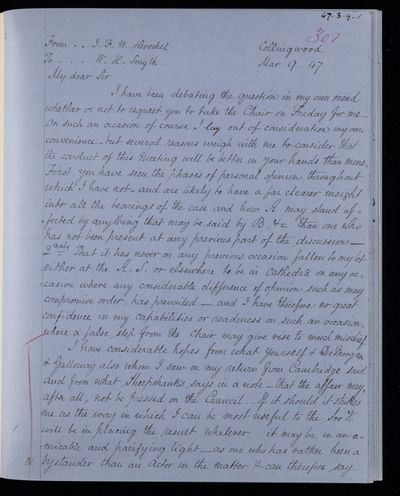 47.3.9-1
307
From .. J. F. W. Herschel Collingwood
To .... W. H. Smyth Mar. 9 - 47
My dear Sir
I have been debating the question in my own mind
whether or not to request you to take the Chair on Friday for me...
On such an occasion of course I lay out of consideration my own
convenience - but several reasons weigh with me to consider that
the conduct of this Meeting will be better in your hands than mine.
First you have seen the phases of personal opinion throughout
which I have not - and are likely to have a far clearer insight
into all the bearings of the case and how A may stand af-
fected by anything that may be said by B &c than one who
has not been present at any previous part of the discussion -
2ndly That it has never on any previous occasion fallen to my lot
either at the R. S. or elsewhere to be in Cathedrâ on any oc-
casion where any considerable difference of opinion such as may
compromise order, has prevailed - and I have therefore no great
confidence in my capabilities or readiness on such an occasion,
where a false step from the Chair may give rise to much mischief
I have considerable hopes from what Yourself & DeMorgan
& Galloway also whom I saw on my return from Cambridge said
and from what Sheepshanks says in a note - that the affair may,
after all, not be pressed on the Council - If it should it strikes
me as the way in which I can be most useful to the Soc.y
will be in placing the result whatever it may be in an a-
micable and pacifying light - as one who has rather been a
bystander than an Actor in the matter & can therefore say